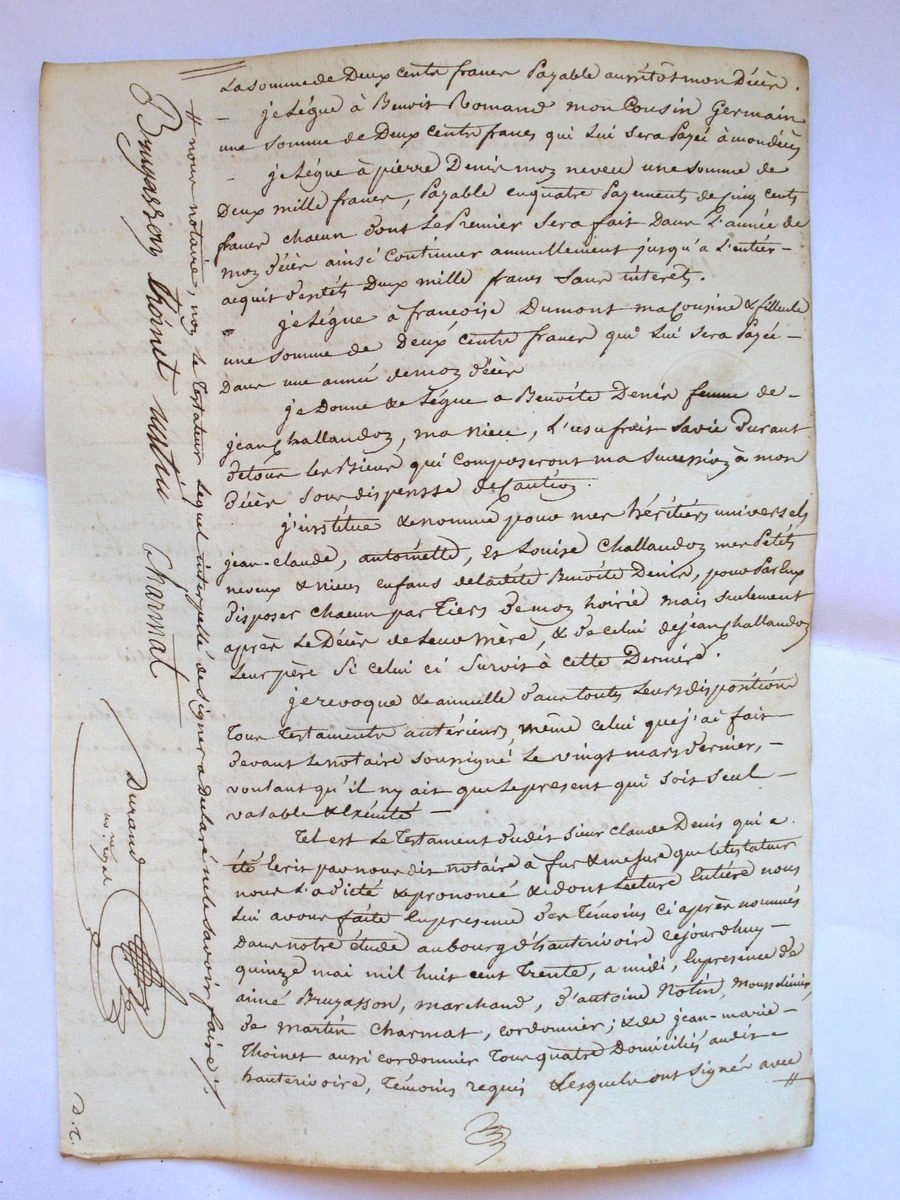 La somme de Deux cents francs Payable aussitôt mon Décès.
– je Légue à Benoit Romand mon Cousin Germain
une somme de Deux cents francs qui Lui sera Payée à mon décès
– je Légue à pierre Denis mon neveu une somme de
Deux mille francs, Payable en quatre Payements de cinq cents
francs chacun dont Le Premier sera fait Dans L'année de
mon décès ainsi continuer annuellement jusqu'a L'entier –
acquit desdits Deux mille francs sans intérêts.
je Légue à françoise Dumont ma Cousine & filleule
une somme de Deux cents francs qui Lui sera Payée –
Dans une année de mon décès
je Donne & Légue a Benoîte Denis femme de –
jean Challandon, ma niece, L'usufruit sa vie Durant
de tous Les Biens qui composeront ma succession à mon
décès sous dispensse de Caution.
j'institue & nomme pour mes héritiers universels
jean-claude, antoinette, et Louise Challandon mes Petits
neveux & nieces enfans de Ladite Benoîte Denis, pour Par Eux
disposer chacun par Tiers de mon hoirie mais seulement
après Le Décès de Leur Mère, & de celui de jean challandon
Leur père si celui ci survit à cette Dernière.
je revoque & annulle dans toutes Leurs dispositions
Tous Testaments antérieurs, même celui que j'ai fait
devant Le notaire soussigné Le vingt mars dernier, –
voulant qu'il n'y ait que Le present qui soit seul –
valable & Exécuté –
Tel est Le Testament dudit sieur claude Denis qui a
été Ecrit par nous dit notaire à fur & mesure que Le testateur
nous L'a dicté & prononcé & dont Lecture Entière nous
Lui avons faite En presence des Témoins ci après nommés
dans notre étude au bourg d'hauterivoire cejourdhuy –
quinze mai mil huit cent trente, a midi, En presence de
aimé Bruyasson, marchand, d'antoine Notin,
de martin Charmat, cordonnier; & de jean-marie –
Thoinet aussi cordonnier Tous quatre Domiciliés audit –
hauterivoire, Témoins requis Lesquels ont signé avec #
# nous notaire, non Le Testateur Lequel interpellé de signer a Declaré ne Le savoir faire./.
Bruyasson thoinet notin Charmat
Durand
no. royal
D. C.